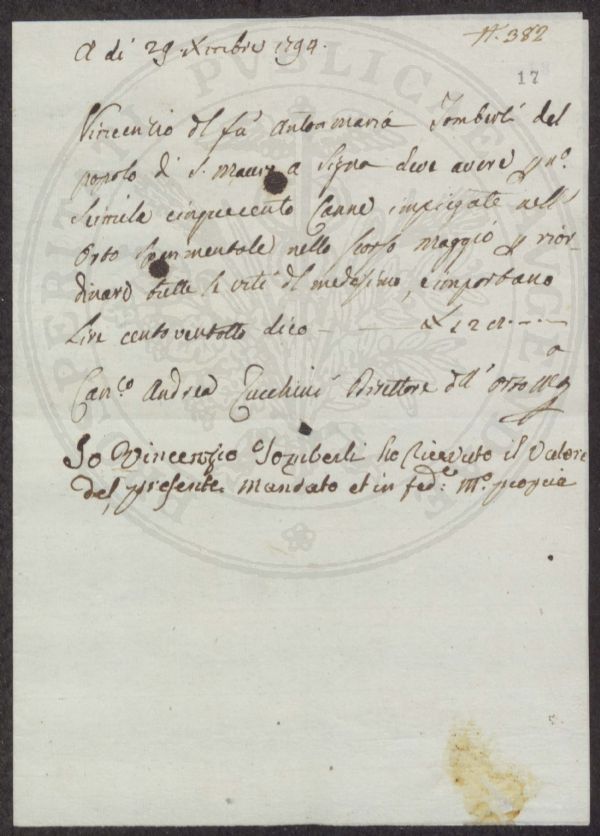 N. 382
A dì 29 Xmbre 1794.
17
Vincenzio del fu Antonmaria Zomberli del
popolo di S. Mauro a Signa deve avere p no.
Seimila cinquecento Canne impiegate nell'
Orto Sperimentale nello scorso Maggio p rior-
dinare tutte le viti del medesimo, e importano
Lire centoventotto dico — £ 128.—.—
Canco Andrea Zucchini Direttore dell' Orto
Io Vincenzio Zomberli ho Ricevuto il Valore
del presente Mandato et in fede Mo. propria
PUBLICAE
PROSPERITATI